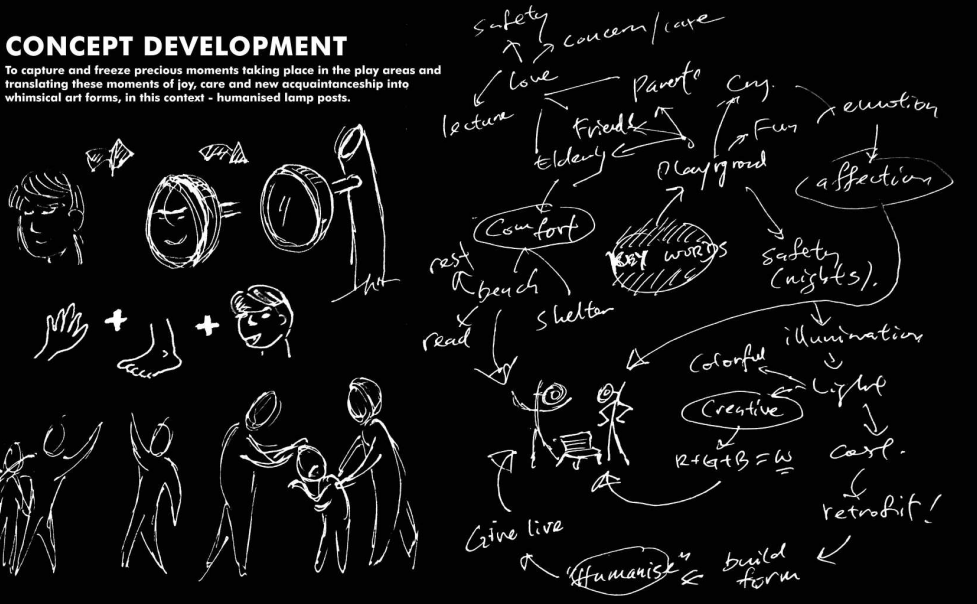 CONCEPT DEVELOPMENT
To capture and freeze precious moments taking place in the play areas and
translating these moments of joy, care and new acquaintanceship into
whimsical art forms, in this context - humanised lamp posts.
+
+
safety
Concern/care
Love
lecture
Parents
Cry.
Friends
Fun
emotion
Elderly
Playground
affection
Comfort
KEY WORDS
safety
(nights).
rest
bench
shelter
read
illumination
Colorful
Light
Creative
R+G+B=W
cost.
retrofit!
Give live
"Humanise"
build
form